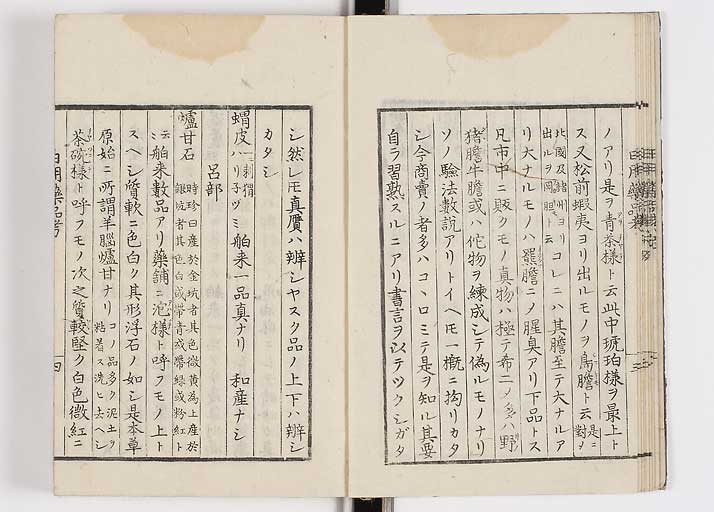 ノアリ是ヲ青茶樣ト云此中琥珀樣ヲ最上ト
ス又松前蝦夷ヨリ出ルモノヲ鳥膽ト云是ニ對ヲ
北國及諸州ヨリ出ルヲ岡膽ト云コレニハ其膽至テ大ナルア
リ大ナルモノハ羆膽ニノ腥臭アリ下品トス
凡市中ニ販クモノ真物ハ極テ希ニノ多ハ野
猪膽牛膽或ハ佗物ヲ練成シテ僞ルモノナリ
ソノ驗法數說アリトイヘモ一概ニ拘リカタ
シ今商賣ノ者多ハコヽロミテ是ヲ知ル其要
自ラ習熟スルニアリ書言ヲ以テツクシガタ
シ然レモ真贋ハ辨シヤスク品ノ上下ハ辨シ
カタシ
呂部
蝟皮 一刺猬 ハリ子ヅミ 舶来一品真ナリ 和産ナシ
爐甘石 時珍曰産於金坑者其色微黄為上産於銀坑者其色白或帶青或帶緑或粉紅ト
云ミ舶来數品アリ藥舗ニ沱樣ト呼フモノ上ト
スヘシ質軟ニ色白ク其形浮石ノ如シ是本草
原始ニ所謂羊腦爐甘ナリ コノ品多ク泥土ク粘着ス洗ヒ去ヘシ
茶碗樣ト呼フモノ次之質較堅ク白色微紅ニ
日用藥品考
四